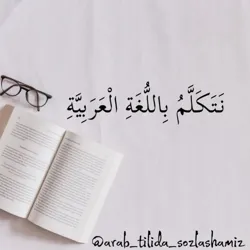 نَتَكَلَّمُ بِاللُّغَةِ الْعَرَبِيَّةِ
@arab_tilida_sozlashamiz